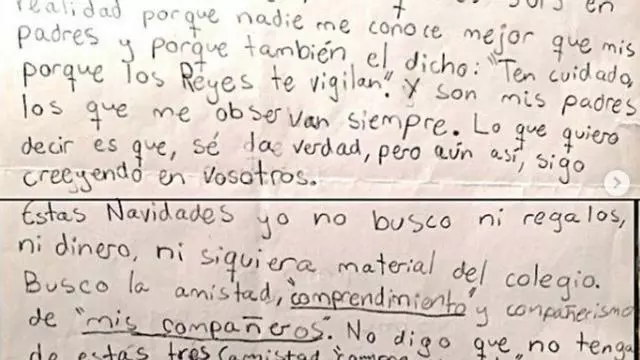 realidad porque nadie me conoce mejor que mis
padres y porque también el dicho: "Ten cuidado,
porque los Reyes te vigilan". Y son mis padres
los que me observan siempre. Lo que quiero
decir es que, sé la verdad, pero aún así, sigo
creeyendo en vosotros.
Estas Navidades yo no busco ni regalos,
ni dinero, ni siquiera material del colegio.
Busco la amistad, "comprendimiento" y compañerismo
de "mis compañeros". No digo que no tenga
de estas tres (amistad